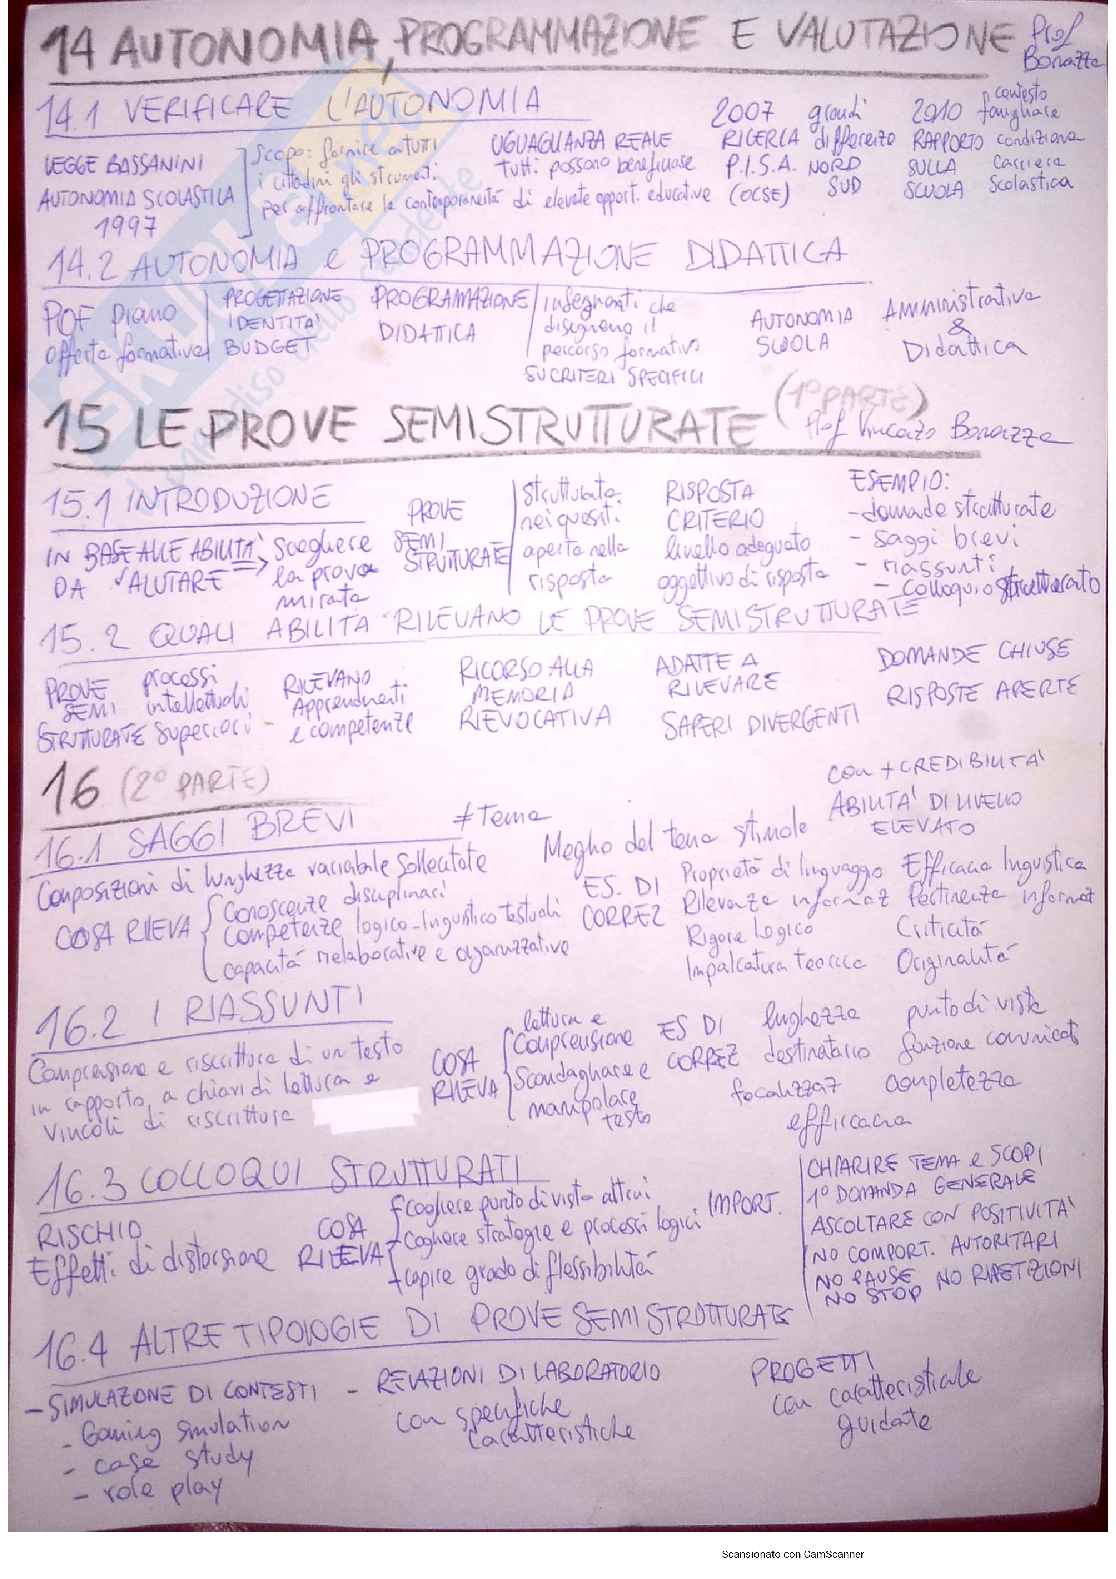 14 AUTONOMIA, PROGRAMMAZIONE E VALUTAZIONE Prof Bonazza
14.1 VERIFICARE L'AUTONOMIA
LEGGE BASSANINI
AUTONOMIA SCOLASTICA
1997
Scopo: fornire a tutti
i cittadini gli strumenti
per affrontare la contemporaneità
UGUAGLIANZA REALE
tutti possano beneficiare
di elevate opport. educative
2007
RICERCA
P.I.S.A.
(OCSE)
grandi
differenze
NORD
SUD
2010
RAPPORTO
SULLA
SCUOLA
contesto
famigliare
condiziona
carriera
scolastica
14.2 AUTONOMIA e PROGRAMMAZIONE DIDATTICA
POF piano
offerta formativa
PROGETTAZIONE
IDENTITA'
BUDGET
PROGRAMAZIONE
DIDATTICA
insegnanti che
disegnano il
percorso formativo
SU CRITERI SPECIFICI
AUTONOMIA
SCUOLA
Amministrativa
&
Didattica
15 LE PROVE SEMISTRUTTURATE (1° PARTE)
Prof Vincenzo Bonazza
15.1 INTRODUZIONE
IN BASE ALLE ABILITA'
DA VALUTARE
Scegliere
la prova
mirata
PROVE
SEMI
STRUTTURATE
strutturata
nei quesiti
aperta nella
risposta
RISPOSTA
CRITERIO
livello adeguato
oggettivo di risposta
ESEMPIO:
- domade strutturate
- saggi brevi
- riassunti
- colloquio strutturato
15.2 QUALI ABILITA' RILEVANO LE PROVE SEMISTRUTTURATE
PROVE
SEMI
STRUTTURATE
processi
intellettuali
superiori -
RILEVANO
Apprendimenti
e competenze
RICORSO ALLA
MEMORIA
RIEVOCATIVA
ADATTE A
RILEVARE
SAPERI DIVERGENTI
DOMANDE CHIUSE
RISPOSTE APERTE
16 (2° PARTE)
16.1 SAGGI BREVI
≠ Tema
Meglio del tema stimole
con + CREDIBILITA'
ABILITA' DI LIVELLO
ELEVATO
Composizioni di lunghezza variabile sollecitate
COSA RILEVA
Conoscenze disciplinari
Competenze logico-linguistico testuali
capacità rielaborative e organizzative
ES. DI
CORREZ
Proprietà di linguaggio
Rilevanza informaz
Rigore Logico
Impalcatura teorica
Efficacia lingustica
Pertinenza informat
Criticità
Originalità
16.2 I RIASSUNTI
Comprensione e riscrittura di un testo
in rapporto a chiavi di lettura e
vincoli di riscrittura
COSA
RILEVA
lettura e
Comprensione
Scondagliare e
manipolare
testo
ES DI
CORREZ
lughezza
destinatario
focalizzaz
efficacia
punto di vista
funzione comunicat
completezza
16.3 COLLOQUI STRUTTURATI
RISCHIO
Effetti di distorsione
COSA
RILEVA
Cogliere punto di vista altrui
Cogliere strategie e processi logici
capire grado di flessibilità
IMPORT.
CHIARIRE TEMA e SCOPI
1° DOMANDA GENERALE
ASCOLTARE CON POSITIVITA'
NO COMPORT. AUTORITARI
NO PAUSE NO RIPETIZIONI
NO STOP
16.4 ALTRE TIPOLOGIE DI PROVE SEMISTRUTTURATE
- SIMULAZIONE DI CONTESTI
- Gaming simulation
- case study
- role play
- RELAZIONI DI LABORATORIO
con specifiche
caratteristiche
PROGETTI
con caratteristiche
guidate
Scansionato con CamScanner